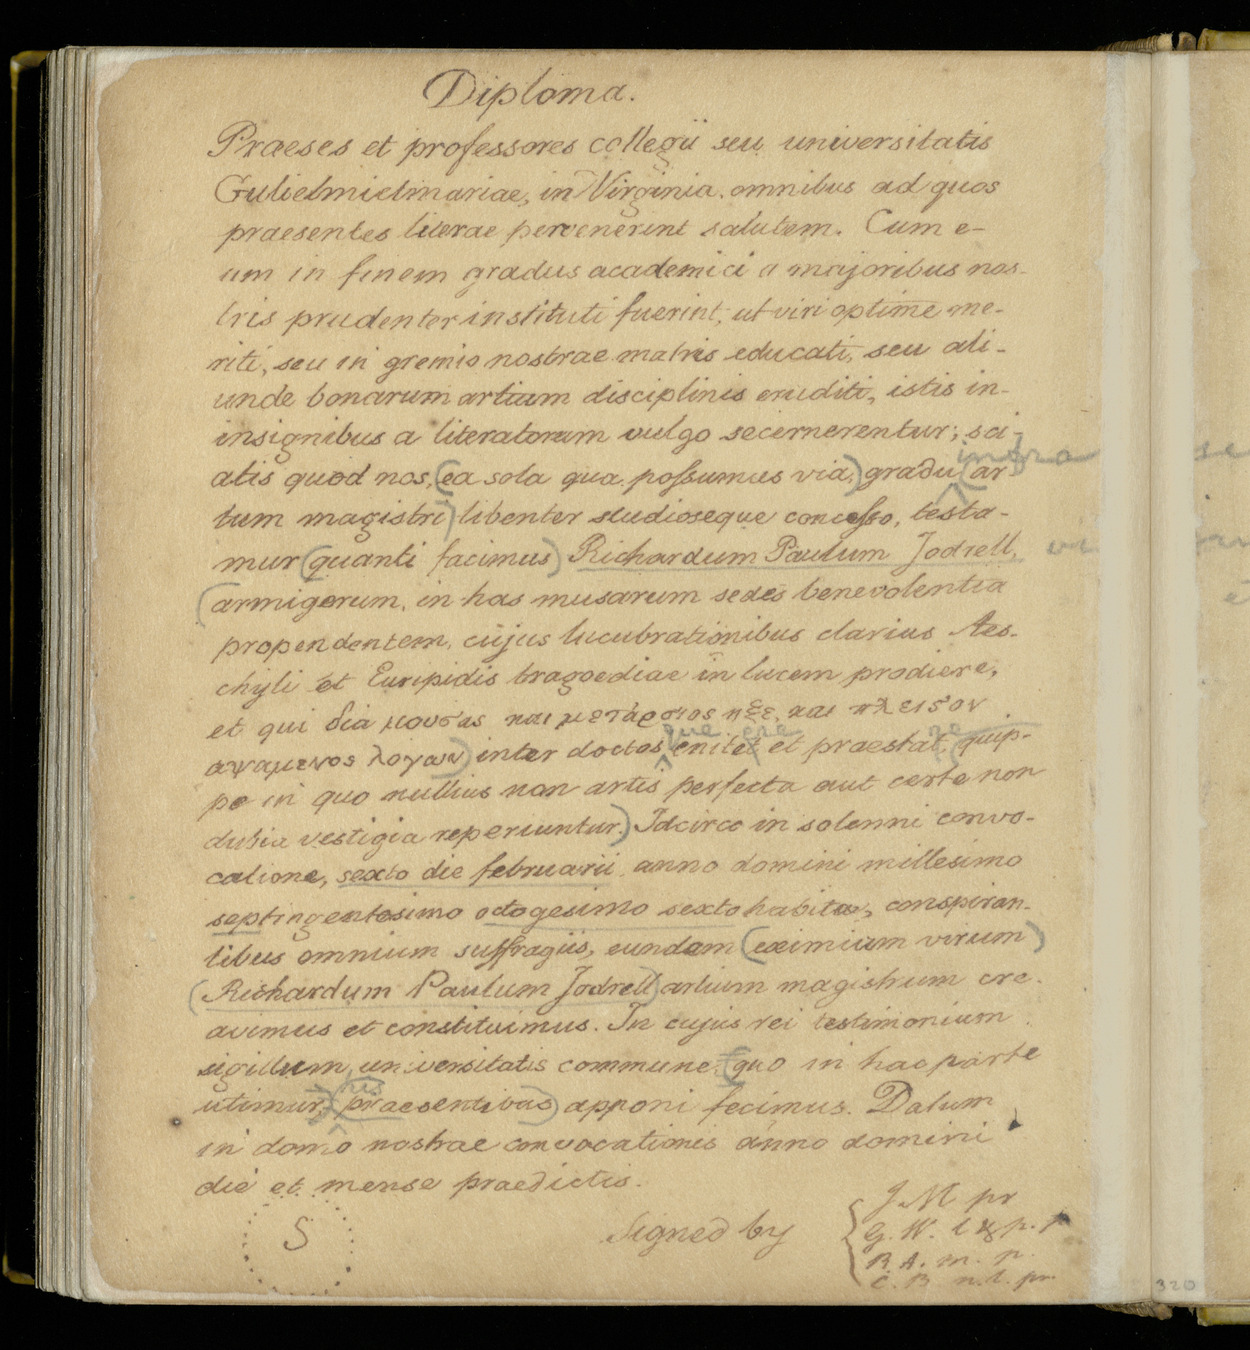 Diploma.
Praeses et professores collegii seu universitatis
Gulielmielmariae, in Virginia. omnibus ad quos
praesentes literae pervenerint salutem. Cum e-
um in finem gradus academici a majoribus nos-
tris prudenter instituti fuerint, ut viri optime me-
riti, seu in gremio nostrae matris educati, seu ali-
unde bonarum artium disciplinis eruditi, istis in-
insignibus a literatorum vulgo secernerentur; sci-
infra
atis quod nos, (ea sola qua possumus via,) gradu (ar
tum magistri) libenter studioseque concesso, testa-
mur (quanti facimus) Richardum Paulum Jodrell,
(armigerum, in has musarum sedes benevolentia
propendentem, cujus lucubrationibus clarius Aes-
chyli et Euripidis tragoediae in lucem prodiere,
et qui δια μουσας και μεταρσιος ηξε, και πλειστον
que ere re
αψαμενος λογων) inter doctos enitet et praestat, (quip-
pe in quo nullius non artis perfecta aut certe non
dubia vestigia reperiuntur.) Idcirco in solenni convo-
catione, sexto die februarii, anno domini millesimo
septingentesimo octogesimo sexto habita, conspiran-
tibus omnium suffragiis, eundem (eximium virum)
(Richardum Paulum Jodrell) artium magistrum cre-
avimus et constituimus. In cujus rei testimonium
sigillum universitatis commune, (quo in hac parte
his
utimur,) (praesentibus) apponi fecimus. Datum
in domo nostrae convocationis anno domini
die et mense praedictis.
S
Signed by
J. M pr
G. W. l & p. p
R. A. m. p.
C. B n. l. pr.
320